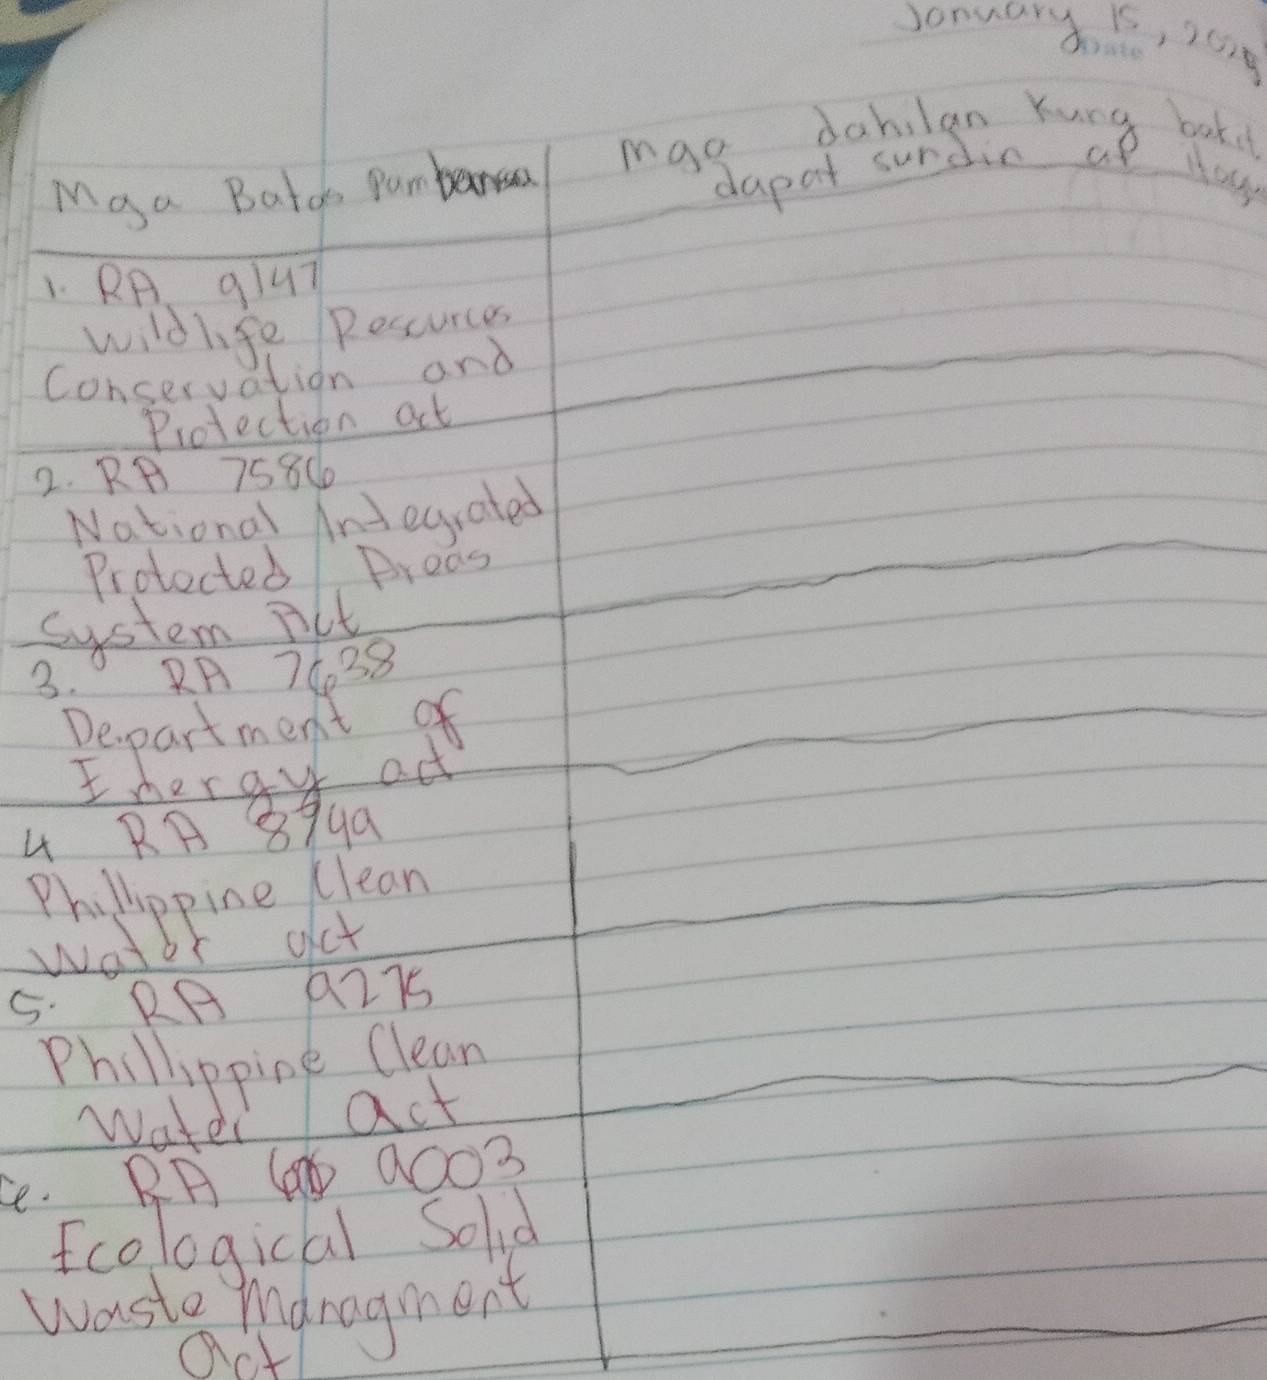 January 15, 2025
Date
Mga Batas Pambansa
mga dahilan kung bakit
dapat sundin at
1. RA 9147
Wildlife Resources
Conservation and
Protection act
2. RA 7586
National Integrated
Protected Areas
System Act
3. RA 7638
Department of
Energy act
4 RA 8749
Phillippine Clean
Water act
5. RA 9275
Phillippine Clean
Water act
6. RA 9003
Ecological Solid
Waste Managment
act